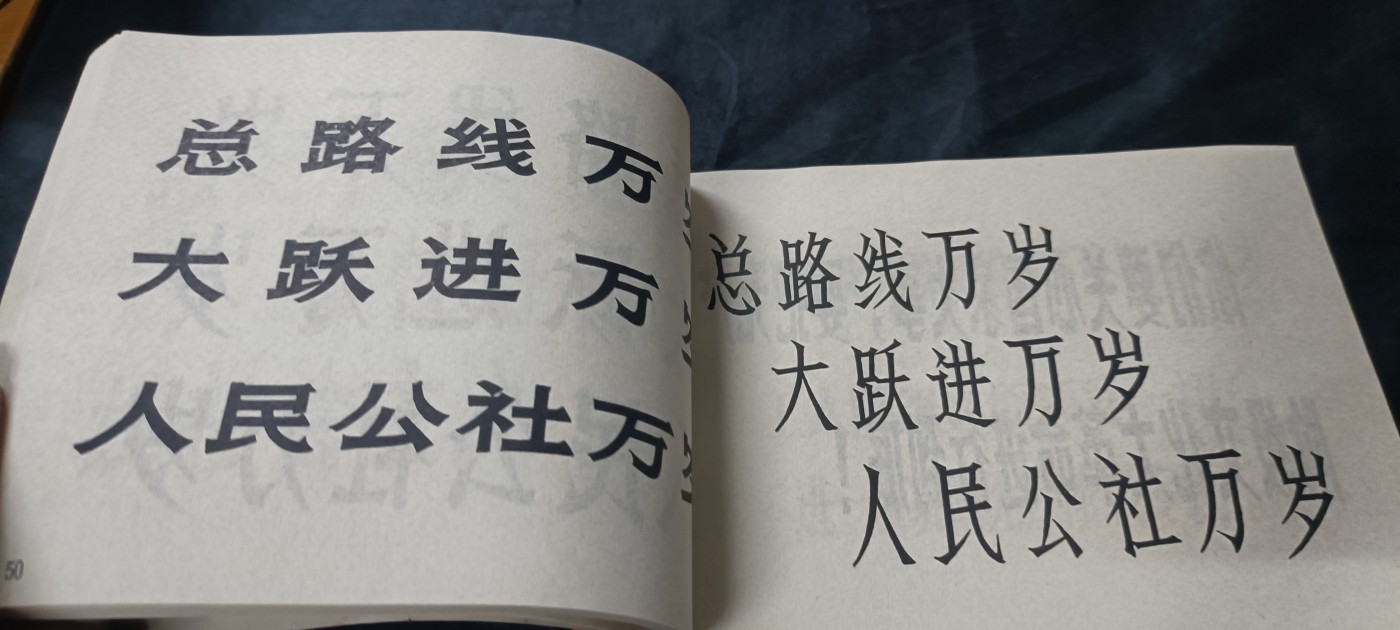 总路线万岁
大跃进万岁
人民公社万岁
50
总路线万岁
大跃进万岁
人民公社万岁